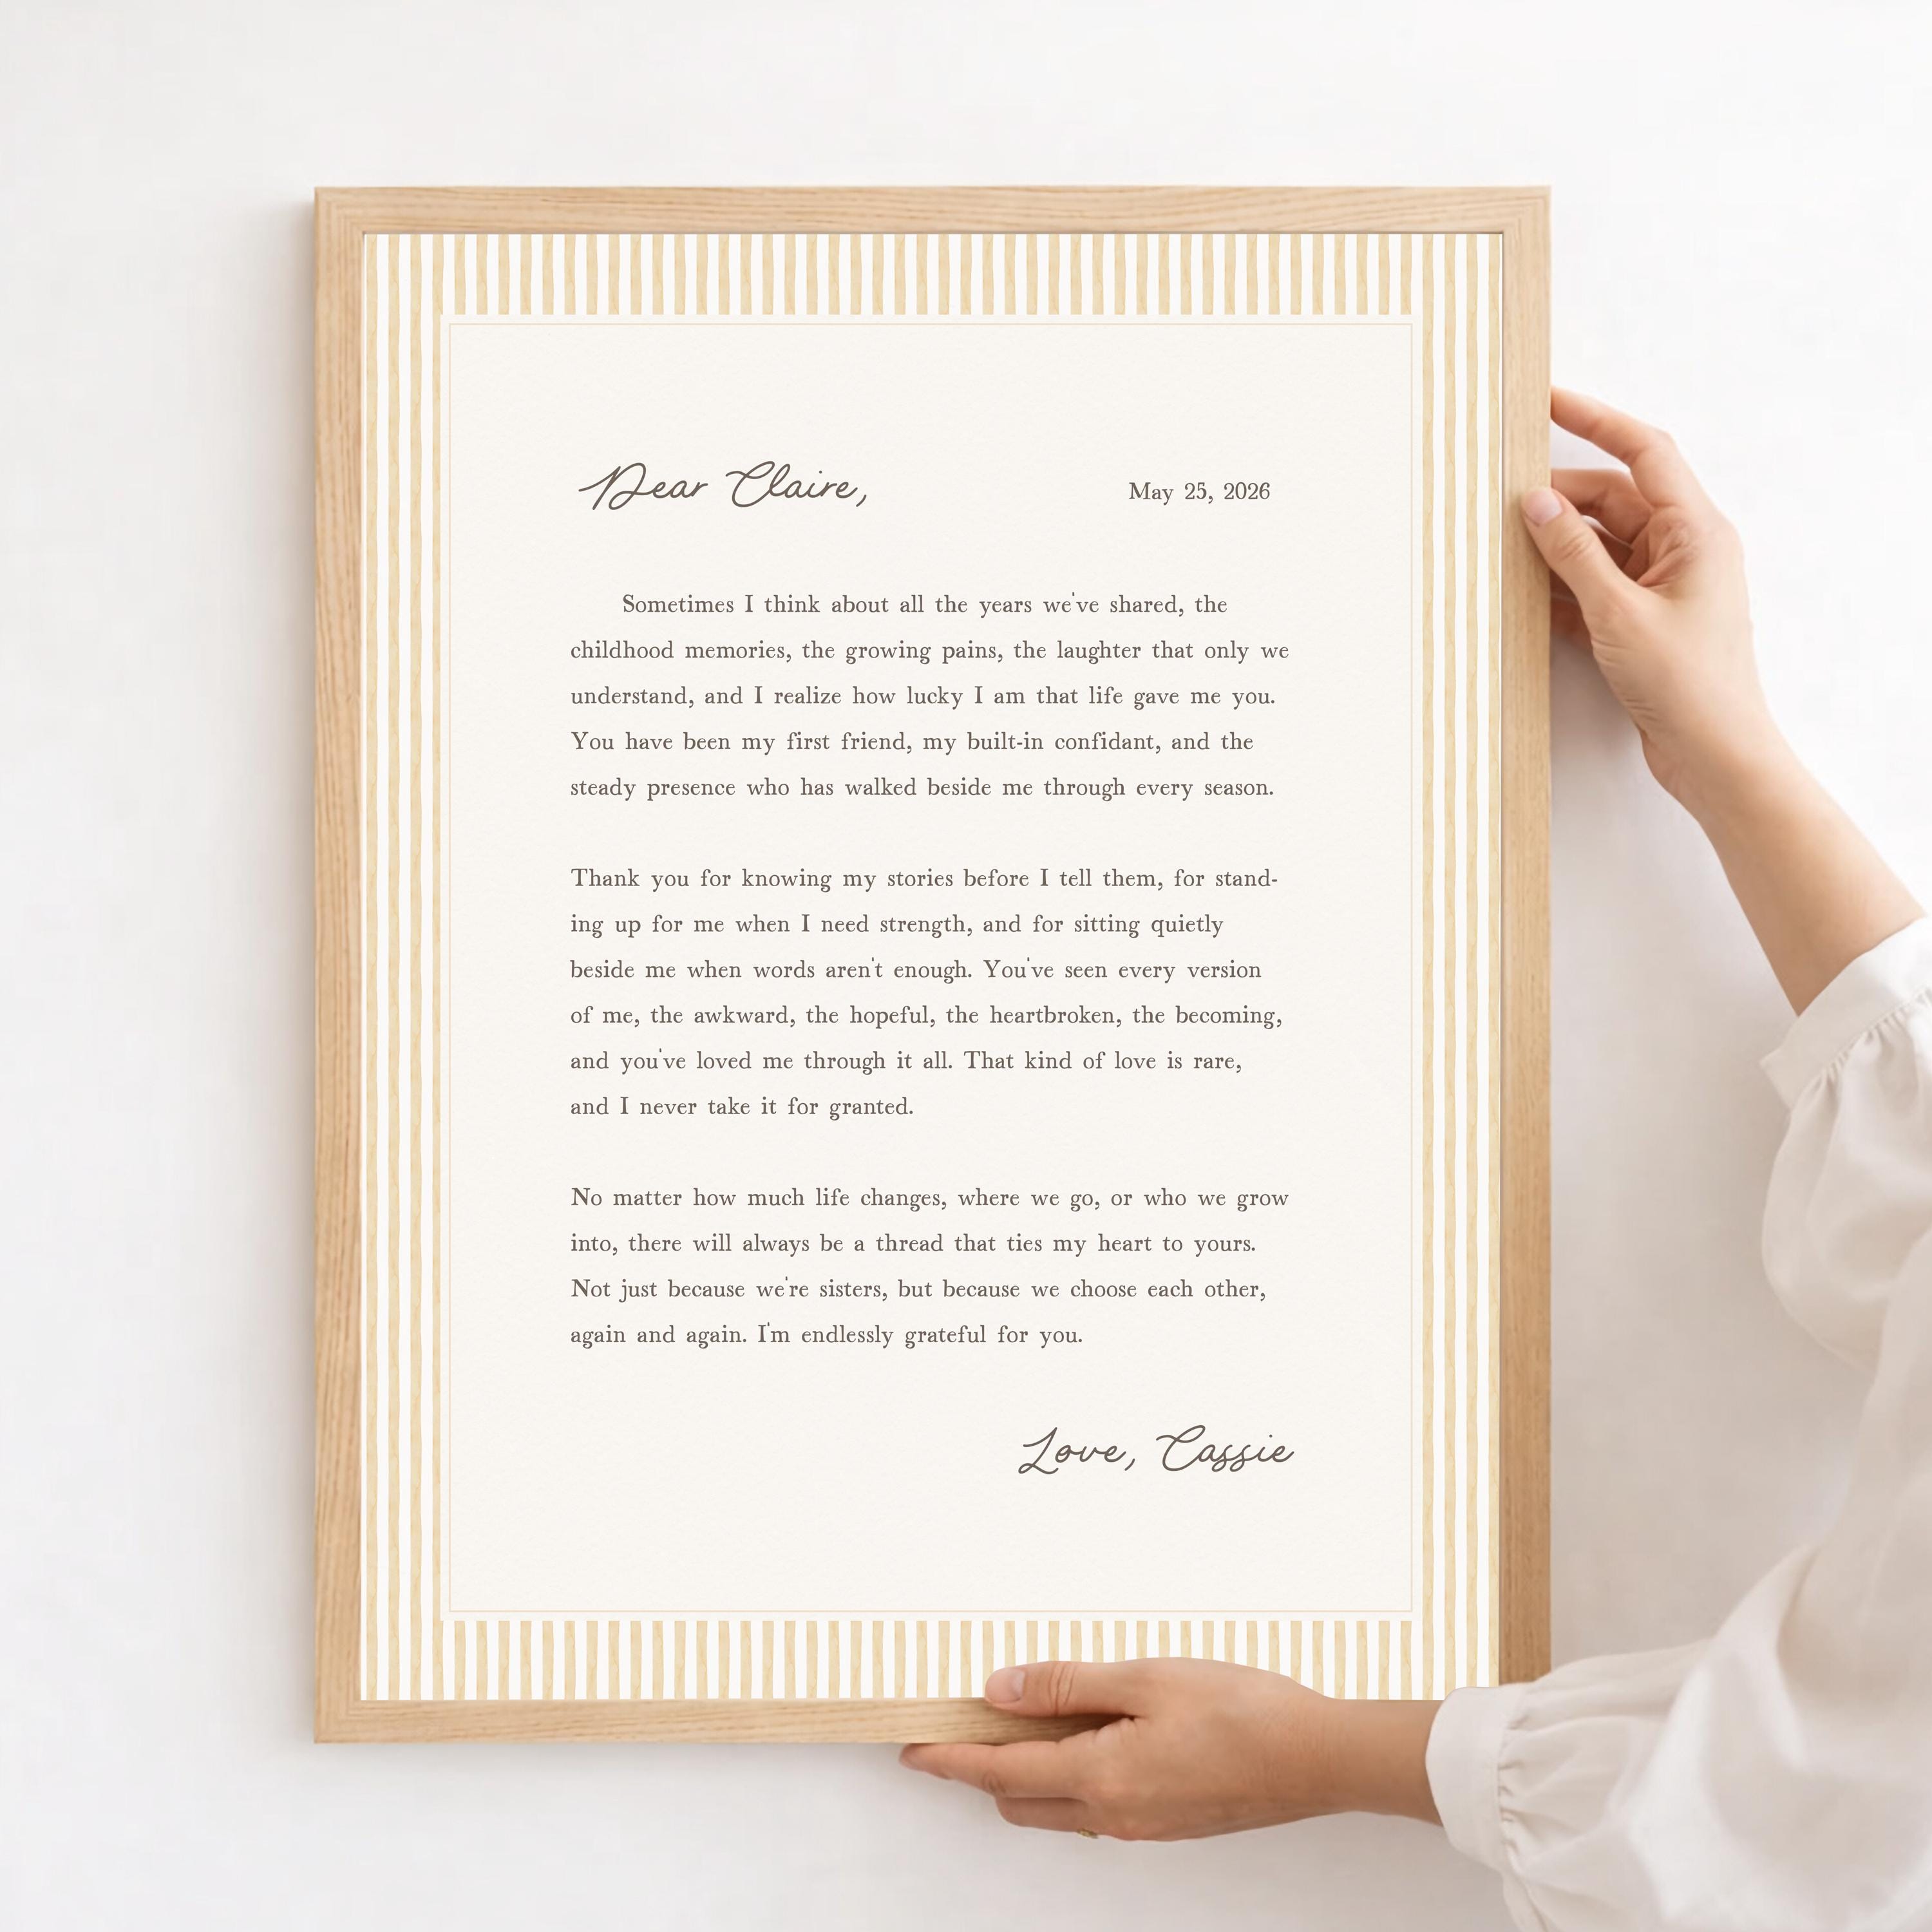 Dear Claire,
May 25, 2026
Sometimes I think about all the years we've shared, the
childhood memories, the growing pains, the laughter that only we
understand, and I realize how lucky I am that life gave me you.
You have been my first friend, my built-in confidant, and the
steady presence who has walked beside me through every season.
Thank you for knowing my stories before I tell them, for stand-
ing up for me when I need strength, and for sitting quietly
beside me when words aren't enough. You've seen every version
of me, the awkward, the hopeful, the heartbroken, the becoming,
and you've loved me through it all. That kind of love is rare,
and I never take it for granted.
No matter how much life changes, where we go, or who we grow
into, there will always be a thread that ties my heart to yours.
Not just because we're sisters, but because we choose each other,
again and again. I'm endlessly grateful for you.
Love, Cassie